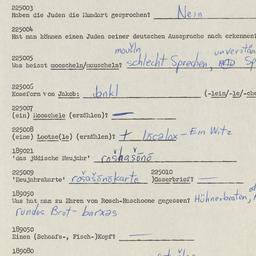 225003
Haben die Juden die Mundart gesprochen? Nein
225004
Hat man können einen Juden seiner deutschen Aussprache nach erkennen
225005 mouśln unverstän
Was heisst mooscheln/muuscheln? schlecht Sprechen, Sp
225006
Koseform von Jakob: Jankl (-lein/-le/-che
225007
(ein) Mooschele (erzählen)? —
225008
(eine) Lootse(le) (erzählen)? + locəlax - Ein Witz
189021
'das jüdische Neujahr' rošhašōnō
225009 225010
'Neujahrskarte' rošašōnōkarte )Goserbrief? —
189050
Was hat man zu Ehren von Rosch-Haschoone gegessen? Hühnerbraten,
rundes Brot - barxəs
189050
Einen (Schaafs-, Fisch-)Kopf? —
189080